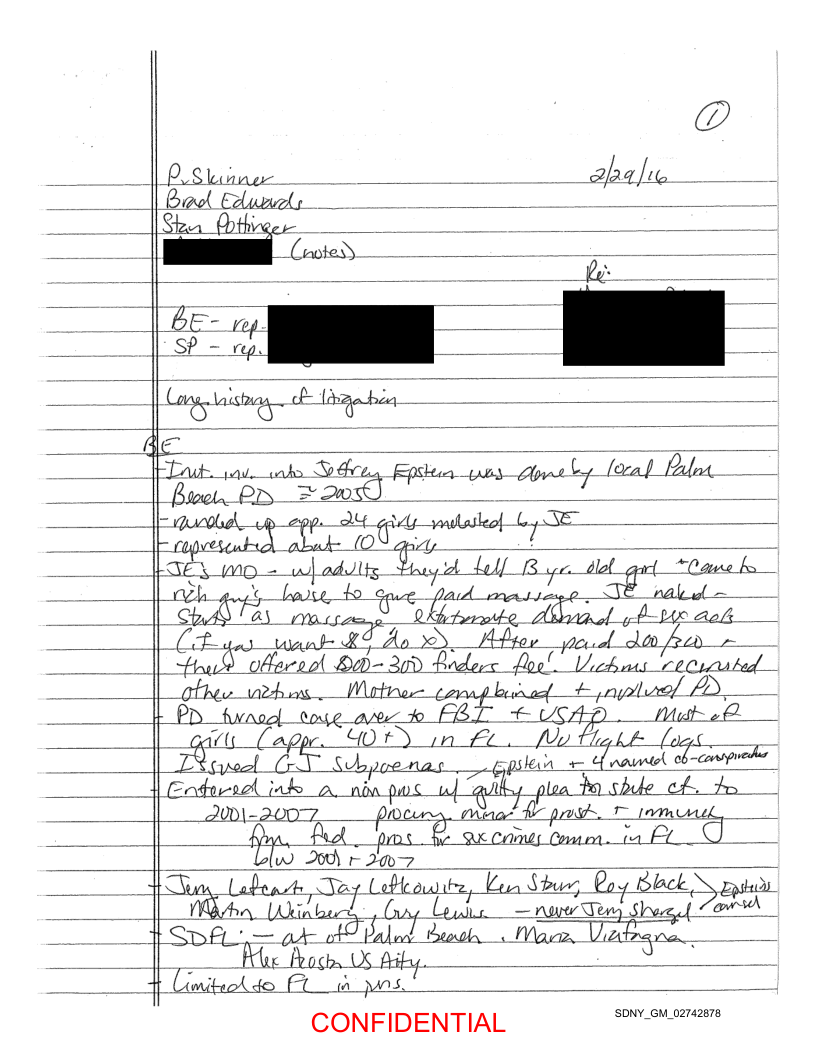 ①
P. Skinner 2/29/16
Brad Edwards
Stan Pottinger
(notes)
Re:
BE - rep.
SP - rep.
Long history of litigation
BE
- Init. inv. into Jeffrey Epstein was done by local Palm
Beach PD ≅ 2005
- rounded up app. 24 girls molested by JE
- represented about 10 girls
- JE's MO - w/ adults they'd tell 13 yr. old girl "come to
rich guy's house to give paid massage. JE naked -
starts as massage demand of sex acts
(if you want $, do x). After, paid 200/300 -
then offered 200-300 finders fee. Victims recruited
other victims. Mother complained + involved PD.
- PD turned case over to FBI + USAO. Most of
girls (appr. 40+) in FL. No flight logs.
Issued GJ subpoenas. Epstein + 4 named co-conspirators
- Entered into a non pros w/ guilty plea to state ct. to
2001-2007 procuring minor for prost. + immunity
from fed. pros. for sex crimes comm. in FL
b/w 2001 + 2007
- Jerry Lefcart, Jay Lefkowitz, Ken Starr, Roy Black, Epstein's
Martin Weinberg, Guy Lewis - never Jerry Shargel counsel
- SDFL - at of Palm Beach. Maria Viafagna.
Alex Acosta US Atty.
- Limited to FL in jurs.
CONFIDENTIAL
SDNY_GM_02742878